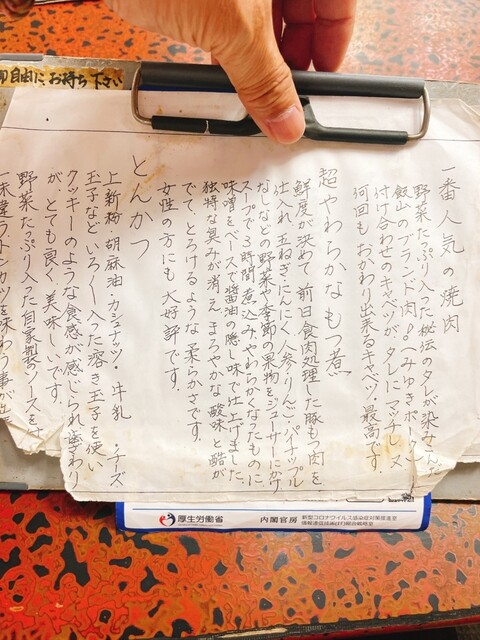 ご自由に、お持ち下さい
一番人気の焼肉
野菜たっぷり入った秘伝のタレが染みこんだ
飯山のブランド肉♪みゆきポーク
付け合わせのキャベツが、タレにマッチし、又
何回もおかわり出来るキャベツ、最高です。
超やわらかなもつ煮
鮮度が決めて、前日食肉処理した豚もつ肉を
仕入れ、玉ねぎ・にんにく・人参・りんご・パイナップル
なしなどの野菜や季節の果物をジューサーにかけ
スープで3時間煮込みやわらかくなったものに、
味噌をベースで醤油の隠し味で仕上げました。
独特な臭みが消え、まろやかな酸味と酷が
でて、とろけるような柔らかさです。
女性の方にも大好評です。
とんかつ
上新粉・胡麻油・カシュナッツ・牛乳・チーズ
玉子などいろ〱入った溶き玉子を使い
クッキーのような食感が感じられ歯ざわり
が、とても良く、美味しいです。
野菜たっぷり入った自家製のソースを
一味違うトンカツを味わう事が出
厚生労働省
内閣官房
新型コロナウイルス感染症対策推進室
情報通信技術(IT)総合戦略室